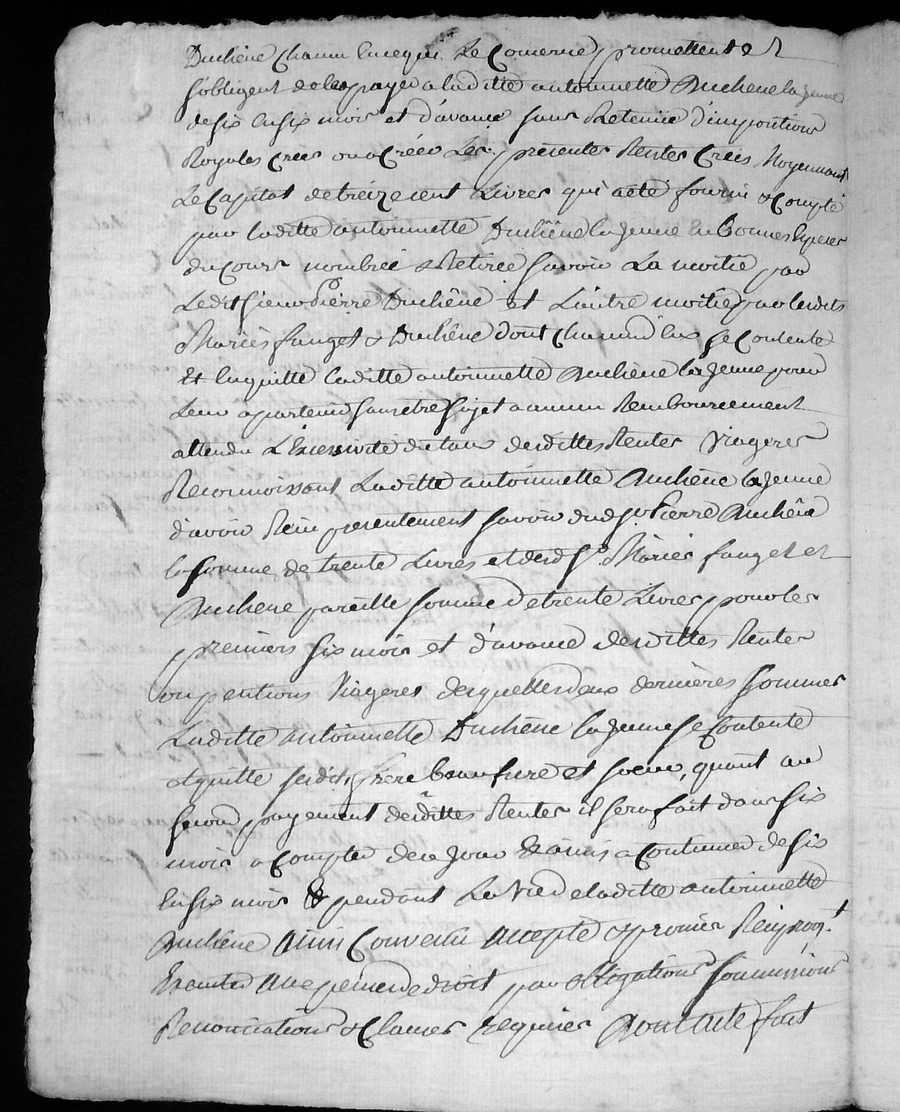 Duchêne Chacun en cequi Le Concerne, promettent &
sobligent de les payer a laditte antoinnette Duchene la jeune
de six en six mois et d'avance sans Retenüe d'impositions
Royales Crees ou a Créer Les presentes Rentes Crées Moyennant
Le Capital de treize cent Livres qui a eté fourni & Compté
par laditte antoinnette Duchêne la jeune en Bonnes Especes
du Cours nombrée & Retirée savoir La moitié par
Ledit sieur Pierre Duchêne et L'autre moitié par lesdits
Mariés fanget & Duchêne dont Chacun d'eux se Contente
Et En quitte laditte antoinnette Duchêne la jeune pour
Leur apartenir sans etre sujet a aucun Remboursement
attendu L'Excessivité du taux desdittes Rentes Viageres
Reconnoissant Laditte antoinnette Duchêne la jeune
d'avoir Reçu presentement savoir dud sr. Pierre Duchêne
la somme de trente Livres et desd srs. Mariés fanget et
Duchene pareille somme de trente Livres, pour les
premiers six mois et d'avance desdittes Rentes
ou pentions Viageres desquelles deux dernières sommes
Laditte antoinnette Duchêne la jeune se Contente
et quitte sesdits frere beaufrere et soeur, quant au
second payement desdittes Rentes il sera fait dans six
mois a Compter de ce jour Et ainsi a Continuer de six
En six mois & pendant La Vie de laditte antoinnette
Duchêne Ainsi Convenu accepté & promis Reciproqt.
Executer Avec peine de droit par obligations soummissions
Renonciations & Clauses requises Dont acte fait